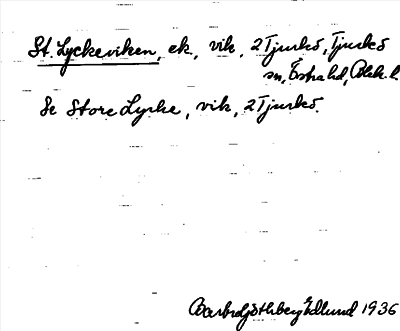 St. Lyckeviken, ek., vik, 2 Tjurkö, Tjurkö
sn, Östra hd, Blek. l.
Se Store Lycke, vik, 2 Tjurkö.
Barbro Edlund 1936